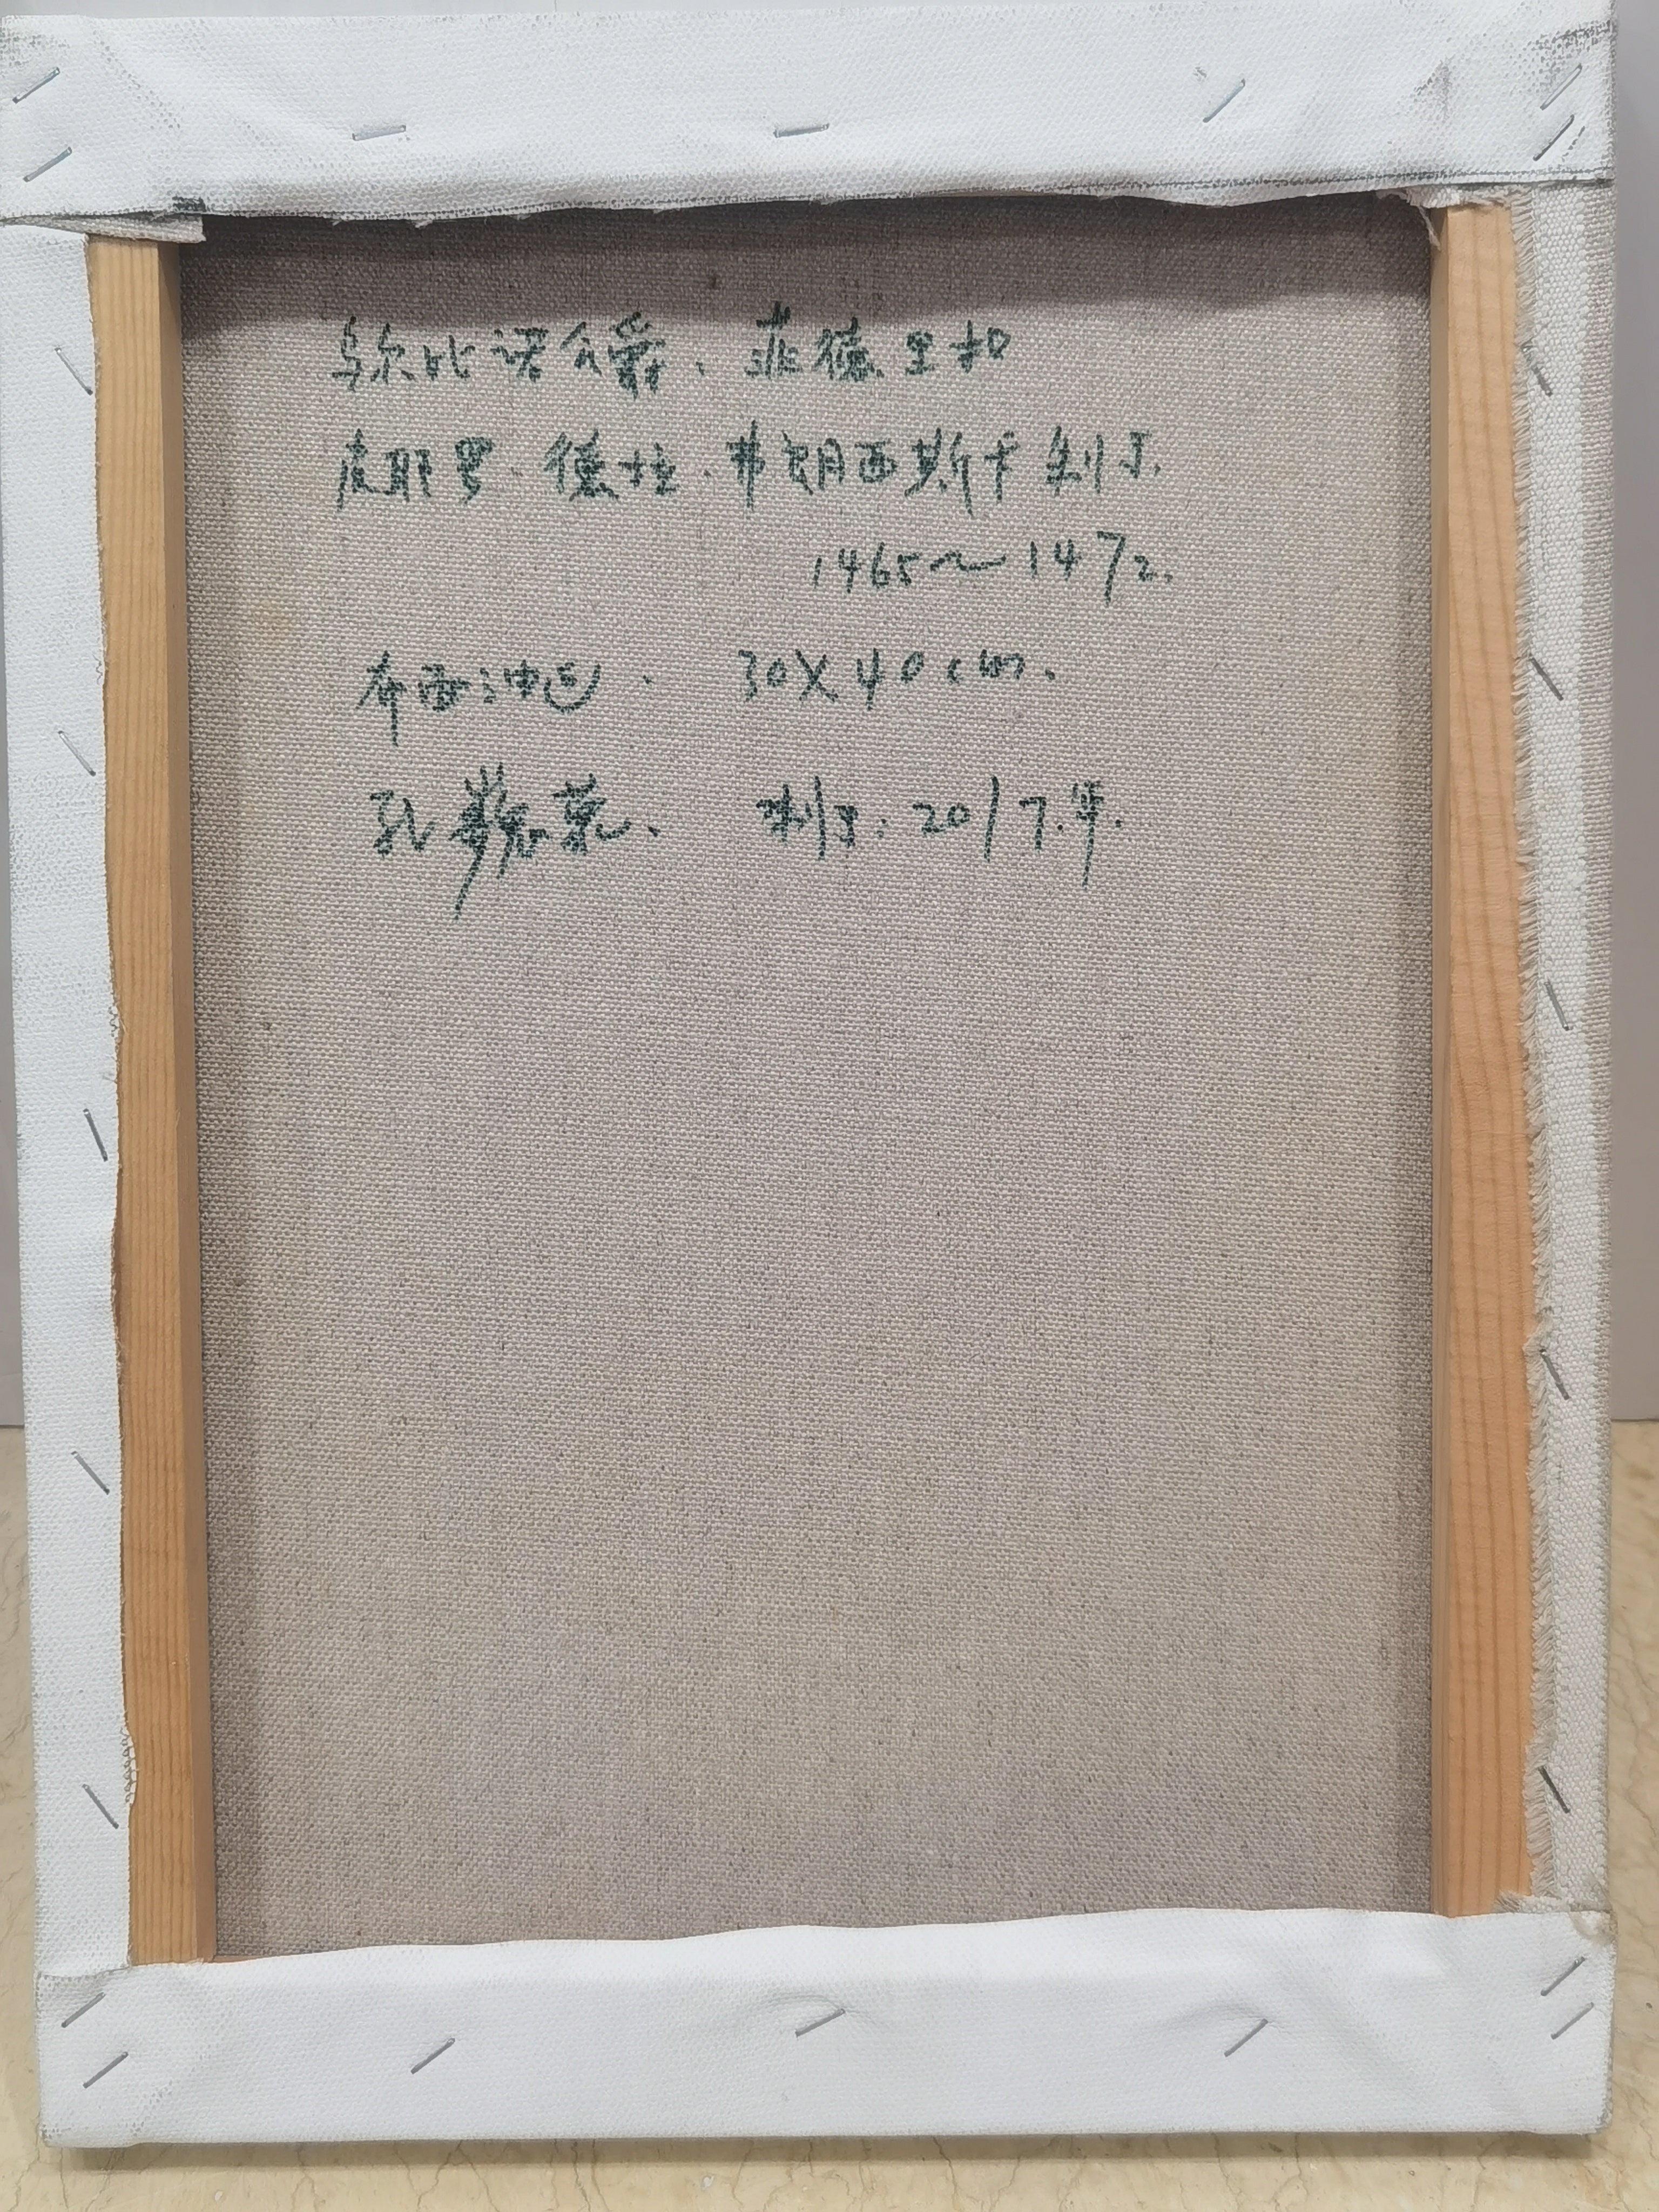 乌尔比诺公爵、菲德里扣
皮耶罗·德拉·弗朗西斯卡制于.
1465～1472.
布面油色. 30X40cm.
孔 苑、 制于:2017.年.